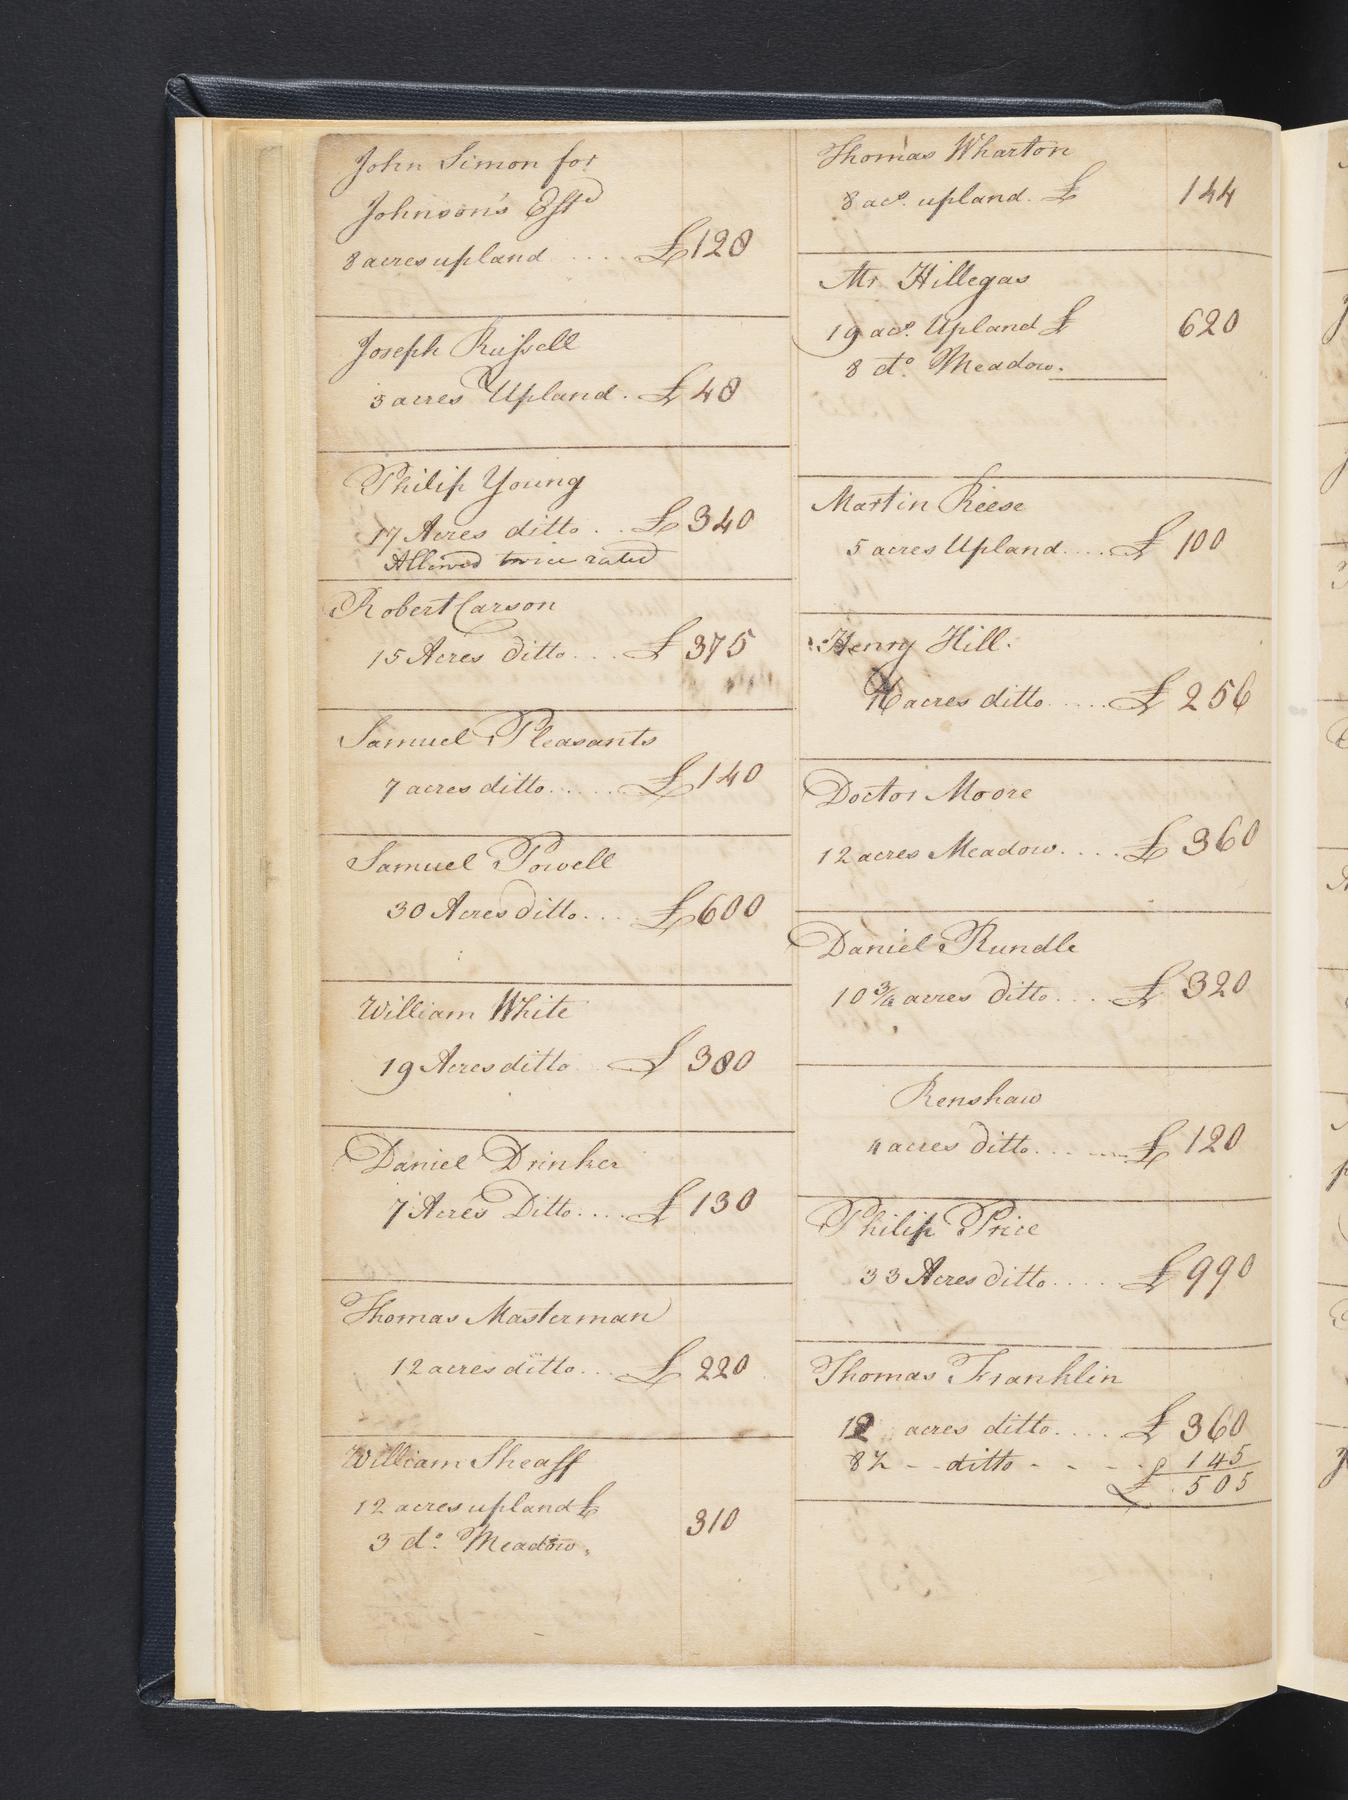 John Simon for
Johnson's Estd
8 acres upland .... £128
Joseph Russell
3 acres Upland . £48
Philip Young
17 Acres ditto . . £340
Allowed twice rated
Robert Carson
15 Acres ditto ... £375
Samuel Pleasants
7 acres ditto ...... £140
Samuel Powell
30 Acres ditto ... £600
William White
19 Acres ditto £380
Daniel Drinker
7 Acres Ditto .... £130
Thomas Masterman
12 acres ditto ... £220
William Sheaff
12 acres upland £
3 do. Meadow. 310
Thomas Wharton
8 acs. upland. £ 144
Mr Hillegas
19 acs. Upland £ 620
8 do. Meadow.
Martin Reese
5 acres Upland .... £100
Henry Hill.
16 acres ditto ..... £256
Doctor Moore
12 acres Meadow .... £360
Daniel Rundle
10 3/4 acres ditto ... £320
Renshaw
4 acres ditto ...... £120
Philip Price
33 Acres ditto ..... £990
Thomas Franklin
12 acres ditto .... £360
ditto - - - 145
£ 505